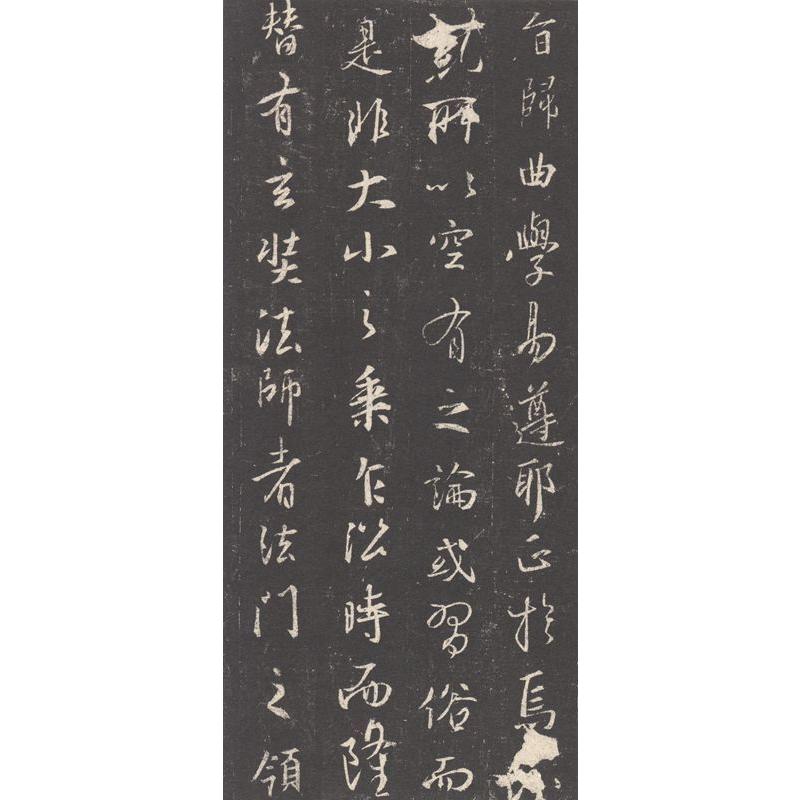 旨歸曲學易遵耶正於焉
所以空有之論或習俗而
是非大小之乘乍沿時而隆
替有玄奘法師者法門之領